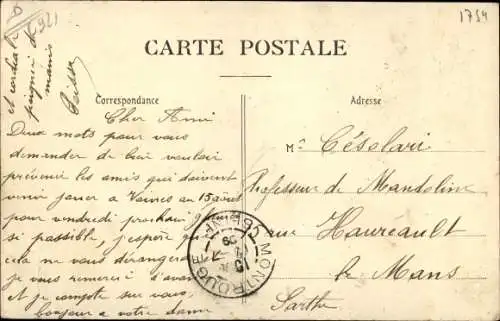 1754
CARTE POSTALE
Correspondance
Adresse
Cher Ami
Deux mots pour vous
demander de bien vouloir
prévenir les amis qui doivent
venir jouer à Voivres au 15 août
pour vendredi prochain
si possible, j'espère
cela ne vous dérangera
je vous remercie d'avance
et je compte sur vous,
bonjour a votre dame
et cordiale
poignée de
mains
Mr Césolari
Professeur de Mandoline
rue Hauréault
le Mans
Sarthe
MONTROUGE